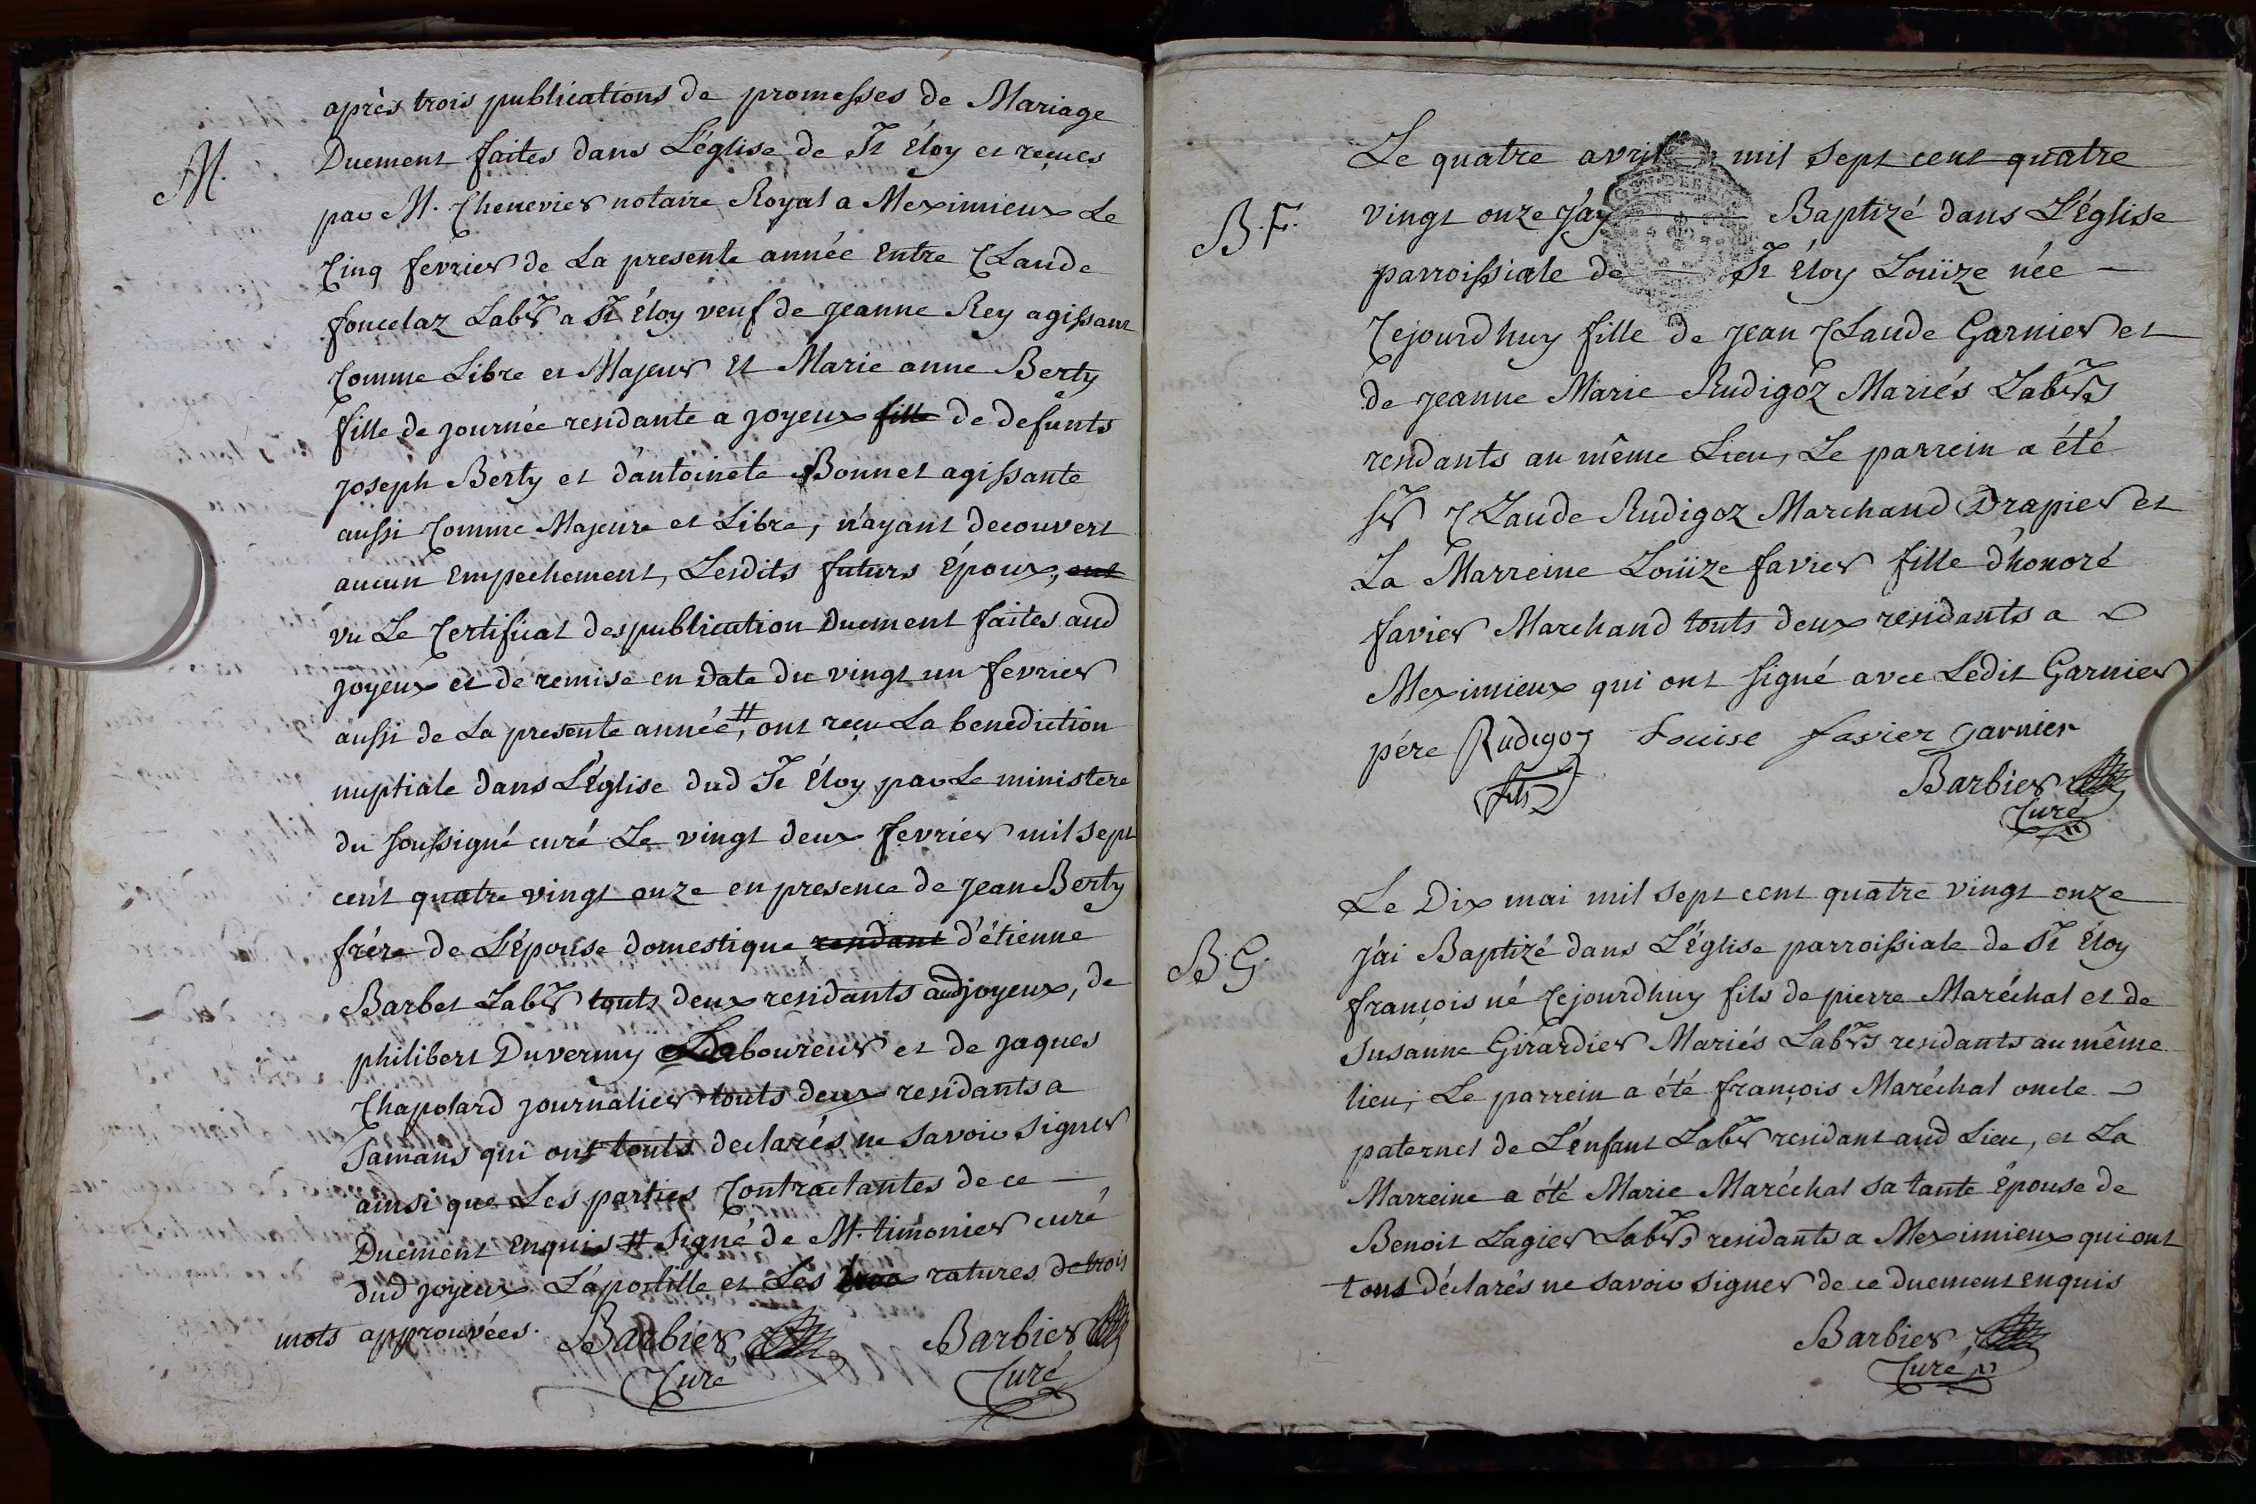 après trois publications de promesses de Mariage
M.
Duement faites dans L'église de St Éloy et reçues
par M. Chenevier notaire Royal a Meximieux Le
Cinq fevrier de La presente année Entre CLaude
foncelaz Labr a St Éloy veuf de jeanne Rey agissant
Comme Libre et Majeur Et Marie anne Berty
fille de journée residante a joyeux fille de defunts
joseph Berty et d'antoinete Bonnet agissante
aussi Comme Majeure et Libre, n'ayant decouvert
aucun Empechement, Lesdits futurs Époux, ont
vu Le Certificat des publication Duement faites aud
joyeux et de remise en Date du vingt un fevrier
aussi de La presente année,# ont reçu La benediction
nuptiale dans L'Église dud St Éloy par Le ministere
du soussigné curé Le vingt deux fevrier mil sept
cent quatre vingt onze en presence de jean Berty
frére de L'épouse domestique residant d'étienne
Barbet Labr touts deux residants aud joyeux, de
philibert Duvermy Laboureur et de jaques
Chapolard journalier touts deux residants a
Samans qui ont touts declarés ne savoir signer
ainsi que Les parties Contractantes de ce
Duement Enquis # signé de M. timonier curé
dud joyeux L'apostille et Les ratures de trois
mots approuvées.
Barbier
Curé
Barbier
Curé
Le quatre avril mil sept cent quatre
B.F.
vingt onze j'ay Baptizé dans L'Église
parroissiale de St Éloy Louïze née
Cejourdhuy fille de jean CLaude Garnier et
de jeanne Marie Rudigoz Mariés Labrs
residants au même Lieu, Le parrein a été
sr CLaude Rudigoz Marchand Drapier et
La Marreine Louïze favier fille d'honoré
favier Marchand touts deux residants a
Meximieux qui ont signé avec Ledit Garnier
pére Rudigoz Louise favier garnier
fils
Barbier
Curé
Le Dix mai mil sept cent quatre vingt onze
B.G.
j'ai Baptizé dans L'Église parroissiale de St Éloy
françois né Cejourdhuy fils de pierre Maréchal et de
Susanne Girardier Mariés Labrs residants au même
lieu, Le parrein a été françois Maréchal oncle
paternel de L'enfant Labr residant aud Lieu, et La
Marreine a été Marie Maréchal sa tante Épouse de
Benoit Lagier Labrs residants a Meximieux qui ont
tous déclarés ne savoir signer de ce duement enquis
Barbier
Curé